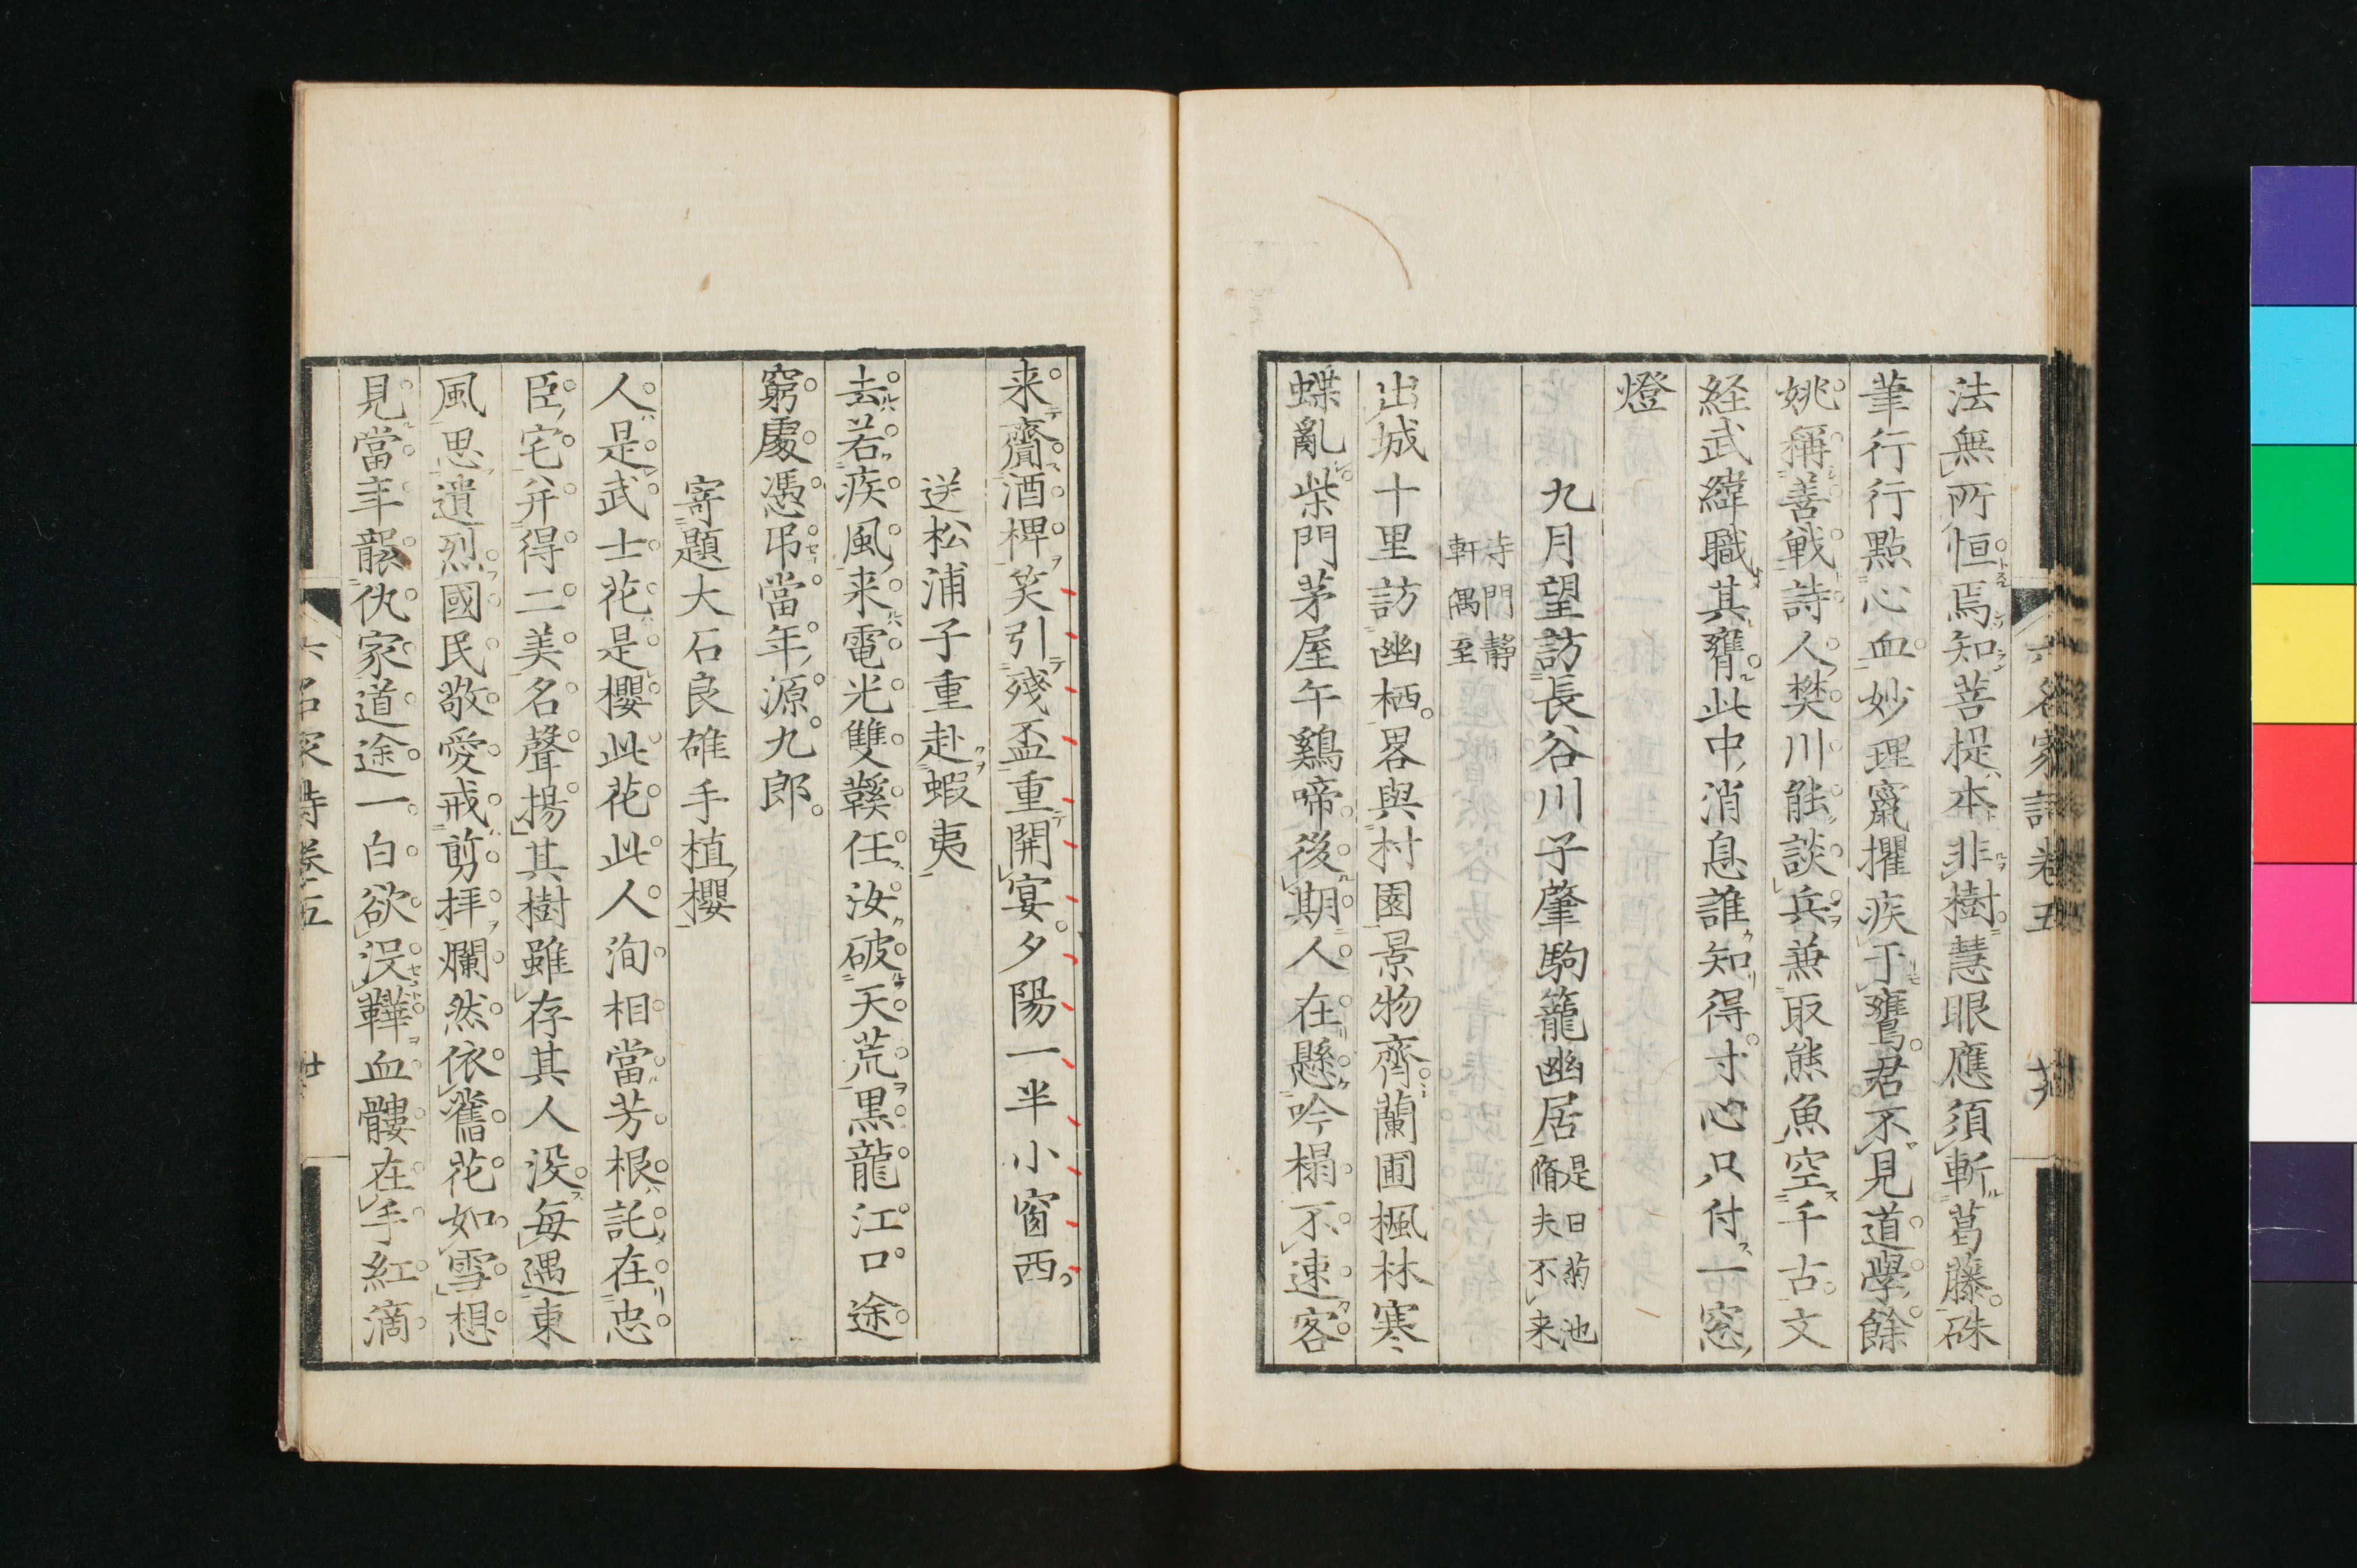 法無所恒焉知菩提本非樹慧眼應須斬葛藤硃
筆行行點心血妙理窩攞疾于鷹君不見道學餘
姚稱善戰詩人樊川能談兵兼取熊魚空千古文
経武緯職其膺此中消息誰知得寸心只付一窓
燈
九月望訪長谷川子肇駒籠幽居
是日菊池
脩夫不来
寺門靜
軒偶至
出城十里訪幽栖畧與村園景物齊蘭圃楓林寒
蝶亂柴門茅屋午鷄啼後期人在懸吟榻不速客
来齎酒椑笑引殘盃重開宴夕陽一半小窗西
送松浦子重赴蝦夷
去若疾風来電光雙鞵任汝破天荒黒龍江口途
窮處憑吊當年源九郎
寄題大石良雄手植櫻
人是武士花是櫻此花此人洵相當芳根託在忠
臣宅并得二美名聲揚其樹雖存其人没毎遇東
風思遺烈國民敬愛戒剪拝爛然依舊花如雪想
見當年報仇家道途一白欲没鞾血髏在手紅滴
六名家詩巻五